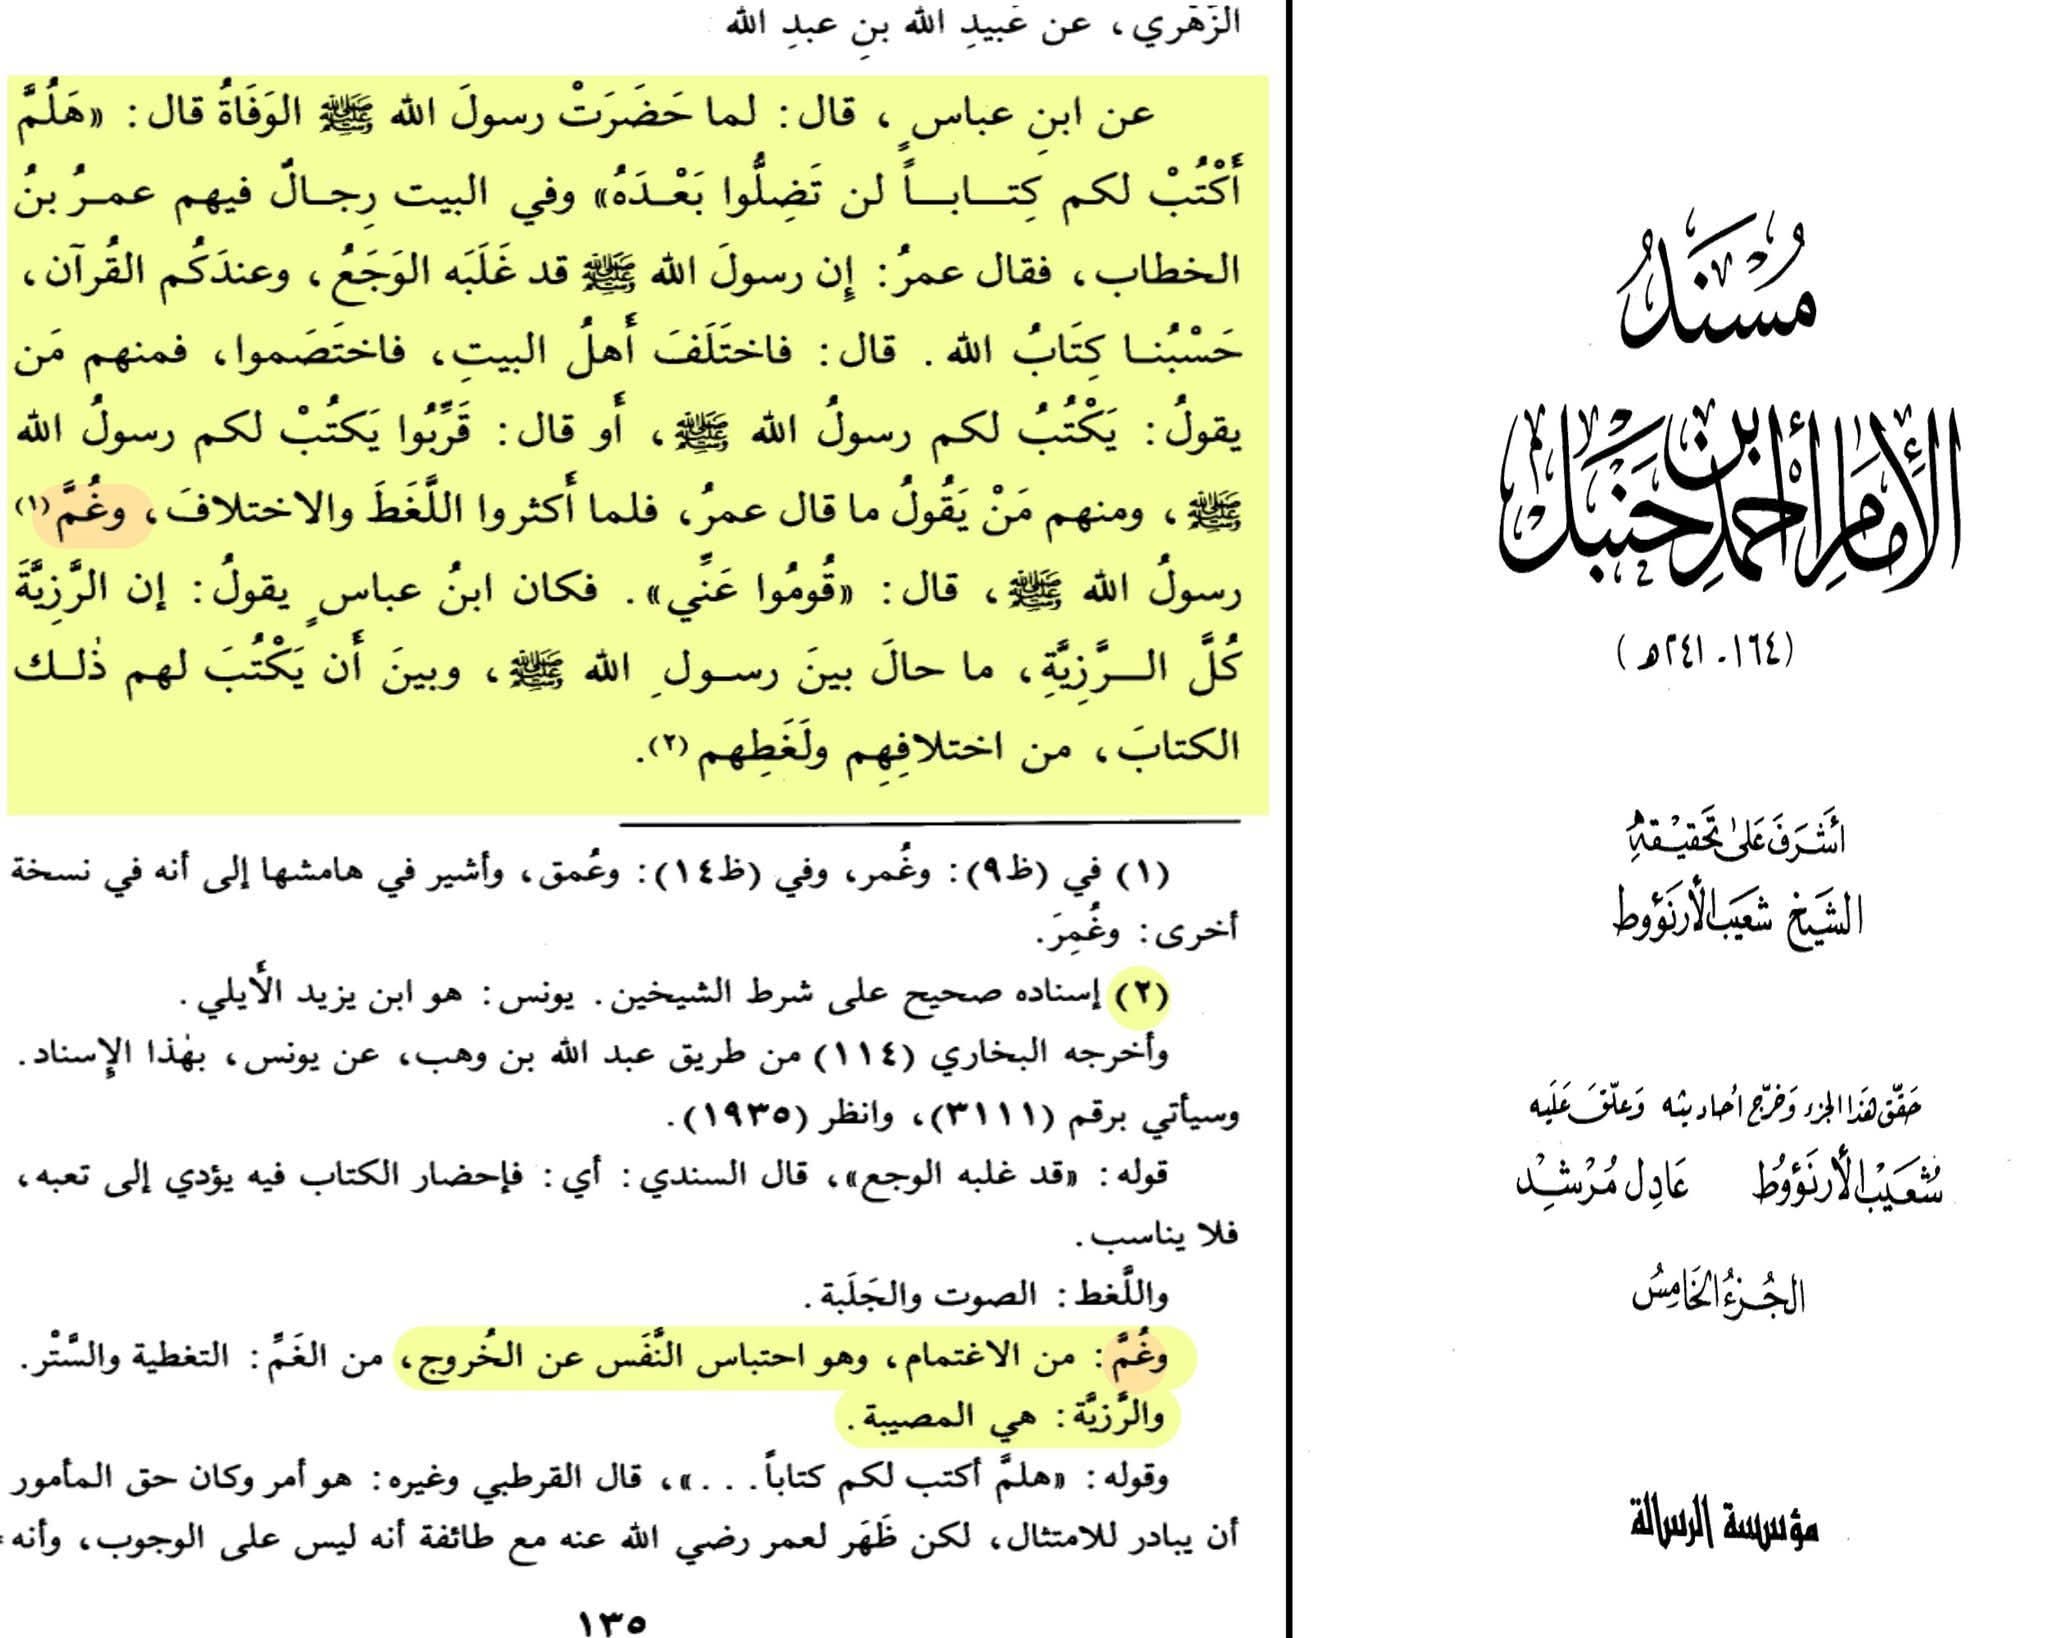 مُسْنَدُ
الإِمَامِ أَحْمَدِ بْنِ حَنْبَل
(١٦٤ - ٢٤١ هـ)
أَشْرَفَ عَلَى تَحْقِيْقِهِ
الشَّيْخُ شُعَيْبُ الأَرْنَؤُوط
حَقَّقَ هَذَا الجُزْءَ وَخَرَّجَ أَحَادِيثَهُ وَعَلَّقَ عَلَيْهِ
شُعَيْبُ الأَرْنَؤُوطُ عَادِل مُرْشِدْ
الجُزْءُ الخَامِسُ
مؤسسة الرسالة
الزُّهري، عن عُبيدِ الله بنِ عبدِ الله
عن ابنِ عباسٍ، قال: لما حَضَرَتْ رسولَ الله ﷺ الوَفَاةُ قال: «هَلُمَّ
أَكْتُبْ لكم كِتاباً لن تَضِلُّوا بَعْدَهُ» وفي البيت رِجالٌ فيهم عمرُ بنُ
الخطاب، فقال عمرُ: إِن رسولَ الله ﷺ قد غَلَبَه الوَجَعُ، وعندَكُم القُرآن،
حَسْبُنا كِتَابُ الله. قال: فاختَلَفَ أَهلُ البيتِ، فاختَصَموا، فمنهم مَن
يقولُ: يَكْتُبُ لكم رسولُ الله ﷺ، أَو قال: قَرِّبُوا يَكتُبْ لكم رسولُ الله
ﷺ، ومنهم مَنْ يَقُولُ ما قال عمرُ، فلما أَكثروا اللَّغَطَ والاختلافَ، وغُمَّ(١)
رسولُ الله ﷺ، قال: «قُومُوا عَنِّي». فكان ابنُ عباسٍ يقولُ: إن الرَّزِيَّةَ
كُلَّ الرَّزِيَّةِ، ما حالَ بينَ رسولِ الله ﷺ، وبينَ أَن يَكْتُبَ لهم ذٰلك
الكتابَ، من اختلافِهِم ولَغَطِهم(٢).
(١) في (ظ٩): وغُمر، وفي (ظ١٤): وعُمق، وأشير في هامشها إلى أنه في نسخة
أخرى: وغُمِرَ.
(٢) إسناده صحيح على شرط الشيخين. يونس: هو ابن يزيد الأَيلي.
وأخرجه البخاري (١١٤) من طريق عبد الله بن وهب، عن يونس، بهٰذا الإِسناد.
وسيأتي برقم (٣١١١)، وانظر (١٩٣٥).
قوله: «قد غلبه الوجع»، قال السندي: أي: فإحضار الكتاب فيه يؤدي إلى تعبه،
فلا يناسب.
واللَّغط: الصوت والجَلَبة.
وغُمَّ: من الاغتمام، وهو احتباس النَّفَس عن الخُروج، من الغَمِّ: التغطية والسَّتْر.
والرَّزيَّة: هي المصيبة.
وقوله: «هلمَّ أكتب لكم كتاباً...»، قال القرطبي وغيره: هو أمر وكان حق المأمور
أن يبادر للامتثال، لكن ظَهَر لعمر رضي الله عنه مع طائفة أنه ليس على الوجوب، وأنه=
١٣٥